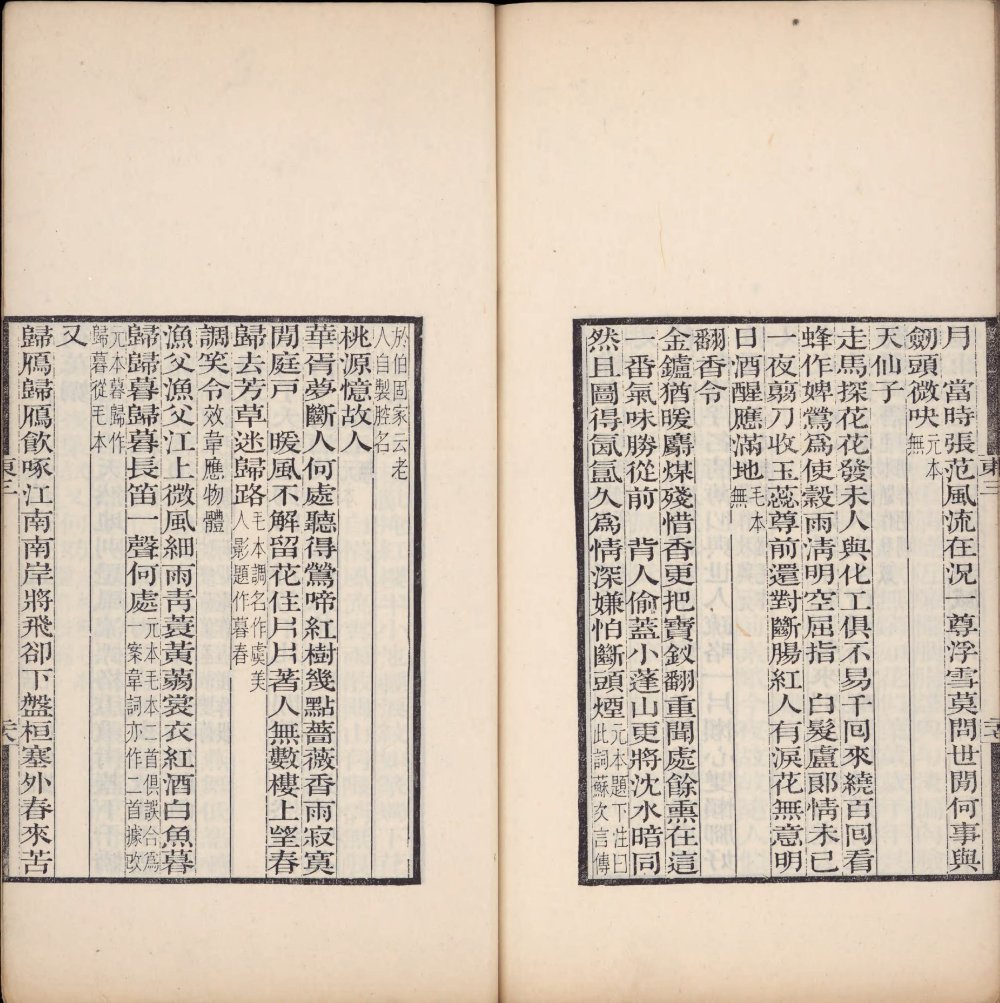 月　當時張范風流在況一尊浮雪莫問世閒何事與
劒頭微吷元本
無
天仙子
走馬探花花發未人與化工俱不易千回來繞百回看
蜂作婢鶯爲使穀雨淸明空屈指　白髮盧郞情未已
一夜翦刀收玉蕊尊前還對斷腸紅人有淚花無意明
日酒醒應滿地毛本
無
翻香令
金鑪猶暖麝煤殘惜香更把寶釵翻重聞處餘熏在這
一番氣味勝從前　背人偷蓋小蓬山更將沈水暗同
然且圖得氤氳久爲情深嫌怕斷頭煙元本題下注曰
此詞蘇次言傳
東三
於伯固家云老
人自製腔名
桃源憶故人
華胥夢斷人何處聽得鶯啼紅樹幾點薔薇香雨寂寞
閒庭戸　暖風不解留花住片片著人無數樓上望春
歸去芳草迷歸路毛本調名作虞美
人影題作暮春
調笑令效韋應物體
漁父漁父江上微風細雨靑蓑黃蒻裳衣紅酒白魚暮
歸歸暮歸暮長笛一聲何處元本毛本二首俱誤合爲
一案韋詞亦作二首據改
元本暮歸作
歸暮從毛本
又
歸鴈歸鴈飮啄江南南岸將飛卻下盤桓塞外春來苦
東三